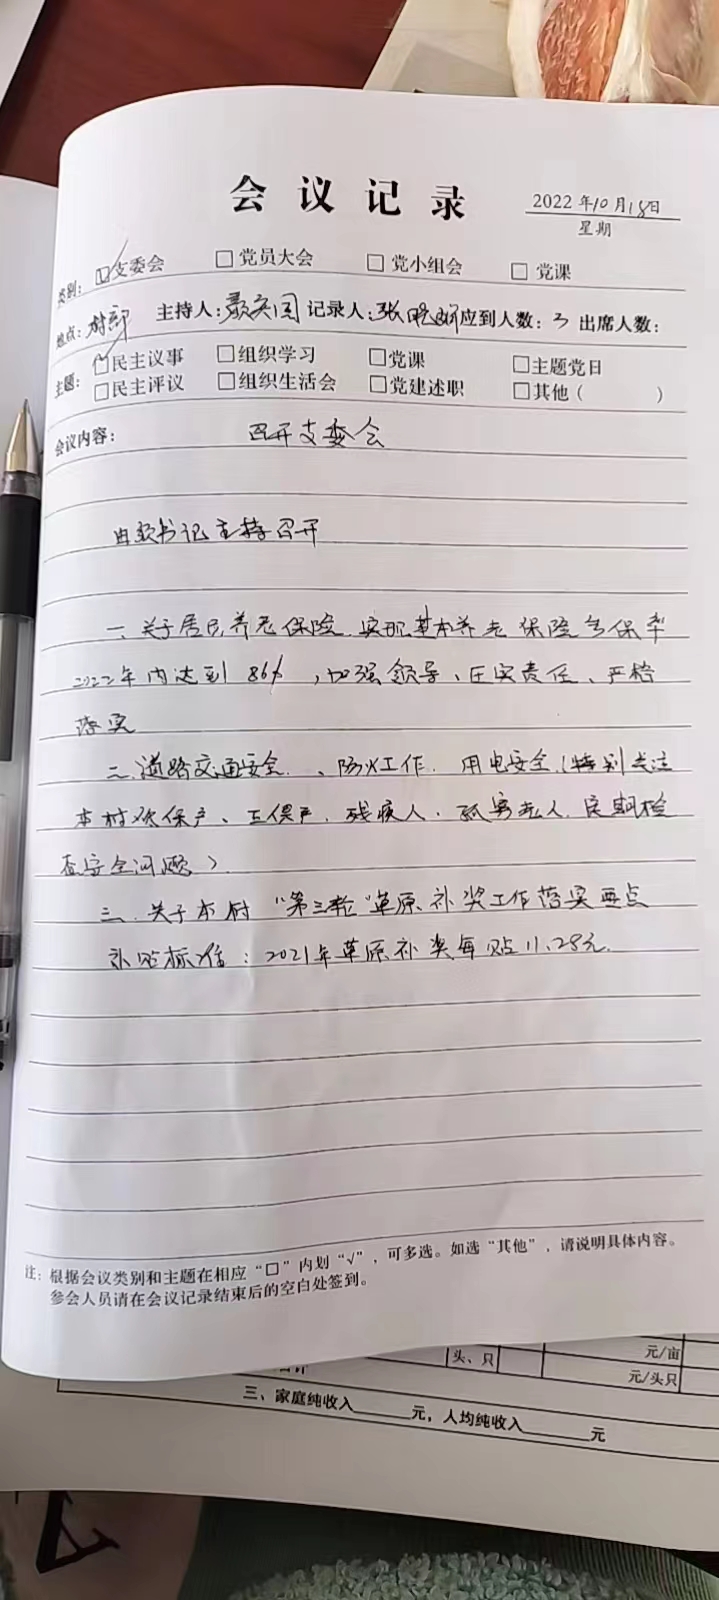 会议记录
2022年10月18日
星期
类别: ☑支委会 □党员大会 □党小组会 □党课
地点:村部 主持人: 记录人:张晓 应到人数:3 出席人数:
主题: ☑民主议事 □组织学习 □党课 □主题党日
□民主评议 □组织生活会 □党建述职 □其他( )
会议内容: 召开支委会
由 书记主持召开
一、关于居民养老保险,实现基本养老保险参保率
2022年内达到86%,加强领导、压实责任、严格
落实
二、道路交通安全、、防火工作、用电安全(特别关注
本村 保户、五保户、残疾人、孤寡老人,定期检
查安全问题)
三、关于本村"第三轮"草原补奖工作落实要点
补贴标准:2021年草原补奖每 11.28元.
注:根据会议类别和主题在相应“□”内划“√”,可多选。如选“其他”,请说明具体内容。
参会人员请在会议记录结束后的空白处签到。
头、只 元/亩
元/头只
三、家庭纯收入 元,人均纯收入 元